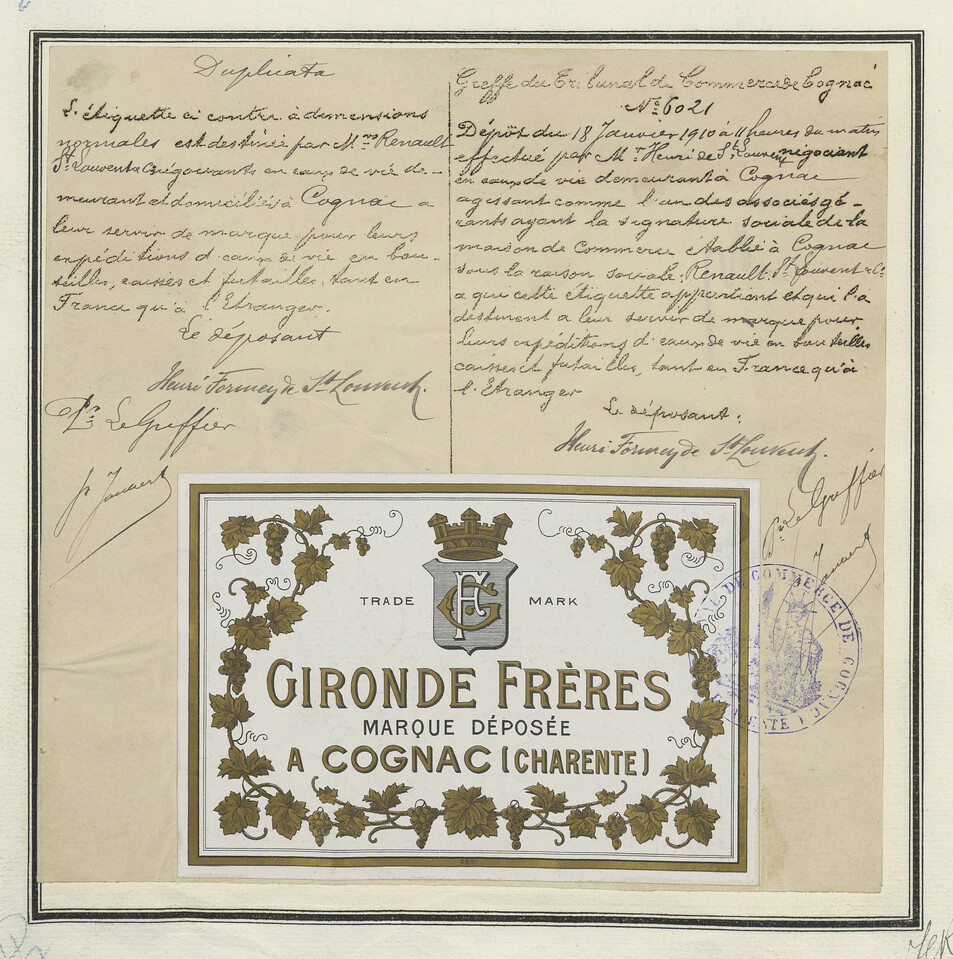 Duplicata
L'étiquette ci contre à dimensions
normales est destinée par M.rs Renault
St Louvent & Cie négociants en eaux de vie de-
meurant et domiciliés à Cognac a
leur servir de marque pour leurs
expéditions d'eaux de vie en bou-
teilles, caisses et futailles, tant en
France qu'à l'Etranger.
Le déposant
Henri Formey de St Louvent.
Pr Le Greffier
Greffe du Tribunal de Commerce de Cognac
No 6021
Dépôt du 18 Janvier 1910 à 11 heures du matin
effectué par Mr Henri de St Louvent négociant
en eaux de vie demeurant à Cognac
agissant comme l'un des associés gé-
rants ayant la signature sociale de la
maison de Commerce établie à Cognac
sous la raison sociale: Renault St Louvent & Cie
a que cette étiquette appartient et qui l'a
destinent a leur servir de marque pour
leurs expéditions d'eaux de vie en bouteilles
caisses et futailles, tant en France qu'à
l'Etranger
Le déposant:
Henri Formey de St Louvent.
Pr Le Greffier
TRADE MARK
GIRONDE FRÈRES
MARQUE DÉPOSÉE
A COGNAC (CHARENTE)
DE COMMERCE DE COGNAC